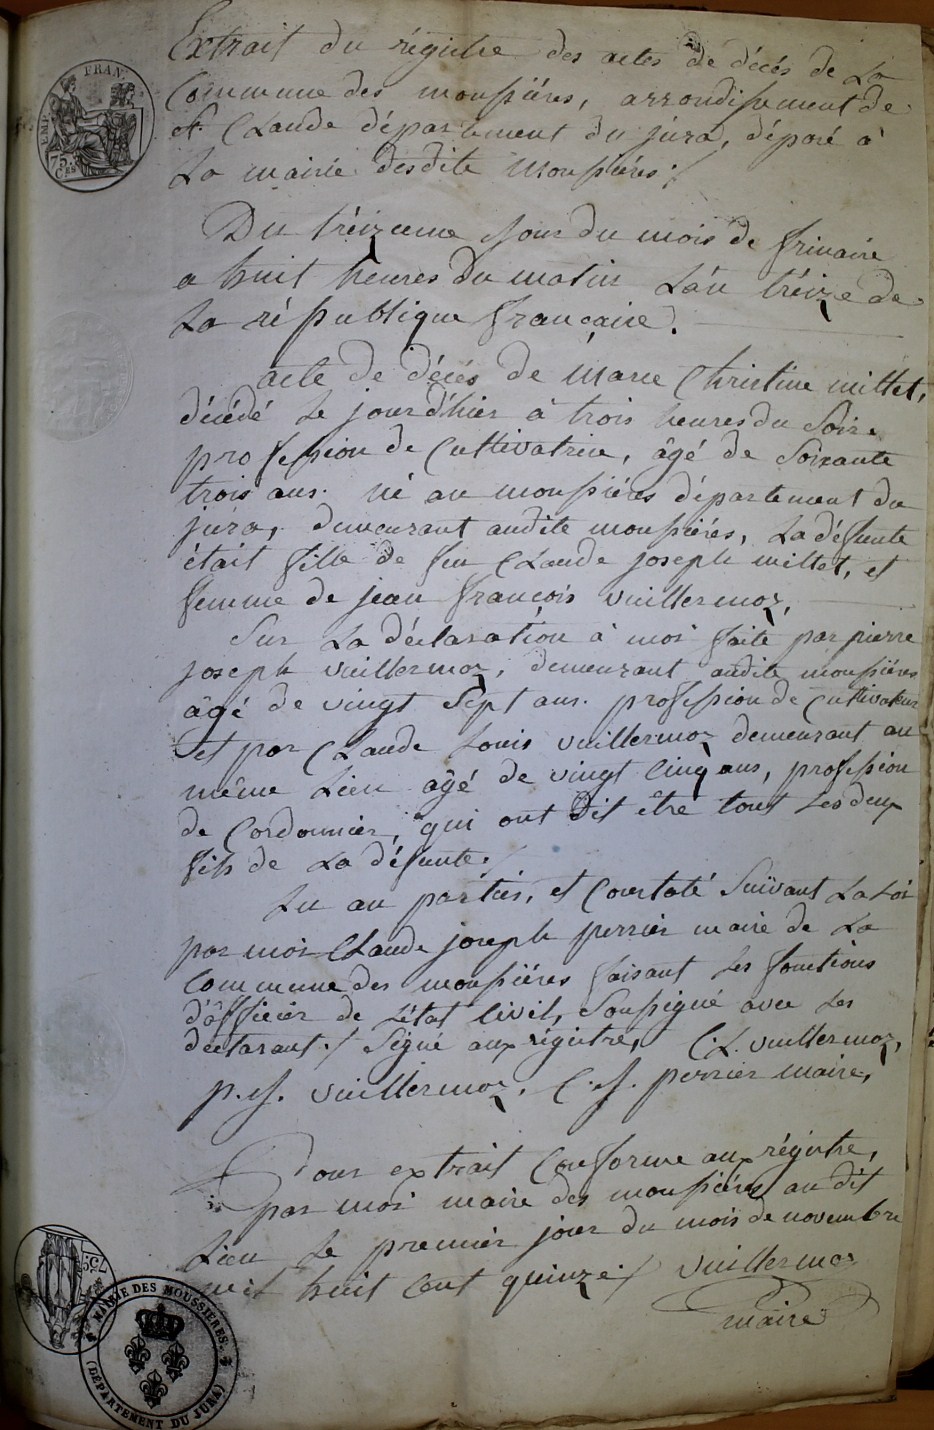 Extrait du régistre des actes de décés de La
Commune des moussiéres, arrondissement de
St. Claude département du jura, déposé à
La mairie desdite Moussiéres ./
Du tréizieme Jour du mois de frimaire
a huit heures du matin L'an tréize de
La république française.
acte de décés de Marie Christine millet,
décédé Le jour d'hier à trois heures du Soir.
profession de Cultivatrice, âgé de Soixante
trois ans. né au moussiéres département du
jura, demeurant audite moussiéres, La défunte
était fille de feu Claude joseph millet, et
femme de jean françois vuillermoz,
Sur La déclaration à moi faite par pierre
joseph vuillermoz, demeurant audite moussiéres
âgé de vingt Sept ans. profession de Cultivateur
et par Claude Louis vuillermoz demeurant au
même Lieu âgé de vingt Cinq ans, profession
de Cordonnier, qui ont Dit être tout Les deux
fils de La défunte.
Lu au parties, et Constaté Suivant La Loi
par moi Claude joseph perrier maire de La
Commune des moussiéres faisant Les fonctions
d'officier de L'état Civil, Soussigné avec Les
déclarant ./ Signé aux régistre, C. L. vuillermoz,
p. J. vuillermoz, C. J. perrier maire,
Pour extrait Conforme aux régistre,
par moi maire des moussiéres au dit
Lieu Le premier jour du mois de novembre
mil huit Cent quinze ./ Vuillermoz
maire
FRAN
EMP
75.
CES
75
MAIRIE DES MOUSSIERES.
(DÉPARTEMENT DU JURA)